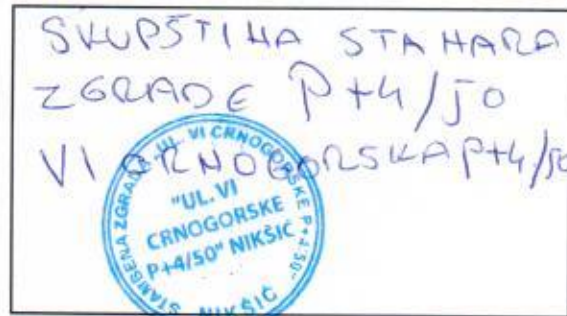 SKUPŠTINA STANARA
ZGRADE P+4/50
VI CRNOGORSKA P+4/50
STAMBENA ZGRADA UL. VI CRNOGORSKE P+4/50"
"UL. VI
CRNOGORSKE
P+4/50" NIKŠIĆ
NIKŠIĆ